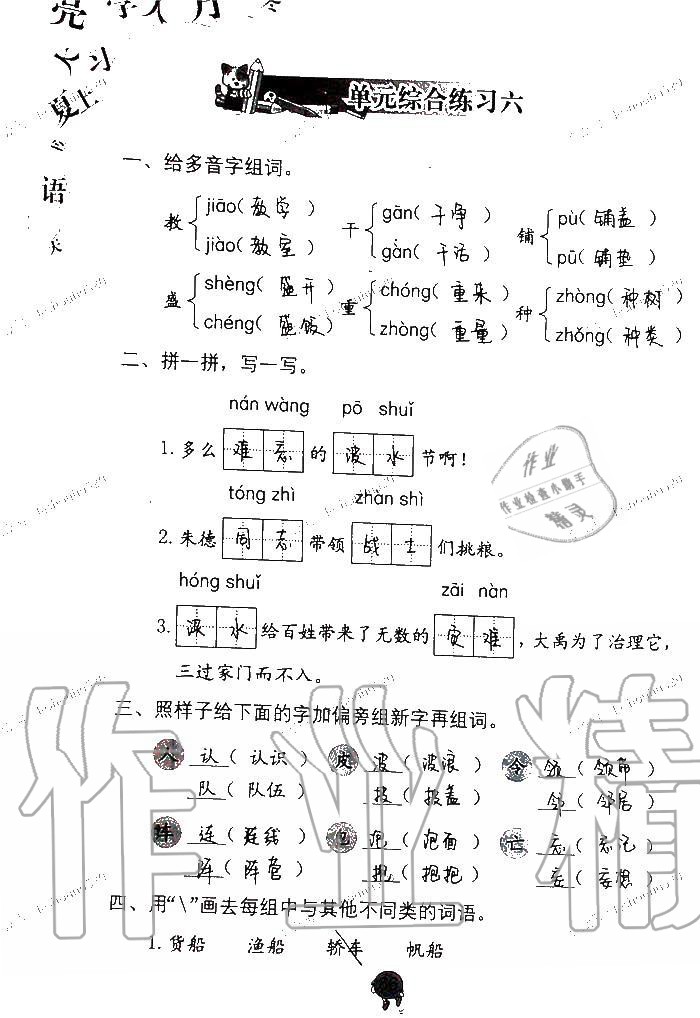 单元综合练习六
一、给多音字组词。
教 jiāo( 教学 ) jiào( 教室 )
干 gān( 干净 ) gàn( 干活 )
铺 pù( 铺盖 ) pū( 铺垫 )
盛 shèng( 盛开 ) chéng( 盛饭 )
重 chóng( 重来 ) zhòng( 重量 )
种 zhòng( 种树 ) zhǒng( 种类 )
二、拼一拼，写一写。
nán wàng pō shuǐ
1. 多么 难忘 的 波水 节啊！
tóng zhì zhàn shì
2. 朱德 同志 带领 战士 们挑粮。
hóng shuǐ zāi nàn
3. 洪水 给百姓带来了无数的 灾难 ，大禹为了治理它，
三过家门而不入。
三、照样子给下面的字加偏旁组新字再组词。
人 认 ( 认识 ) 皮 波 ( 波浪 ) 令 领 ( 领角 )
队 ( 队伍 ) 披 ( 披盖 ) 邻 ( 邻居 )
连 ( 连线 ) 泡 ( 泡面 ) 亡 忘 ( 忘记 )
阵 ( 阵营 ) 抱 ( 抱抱 ) 妄 ( 妄想 )
四、用“\”画去每组中与其他不同类的词语。
1. 货船 渔船 轿车 帆船
作业
作业检查小助手
精灵
作业精